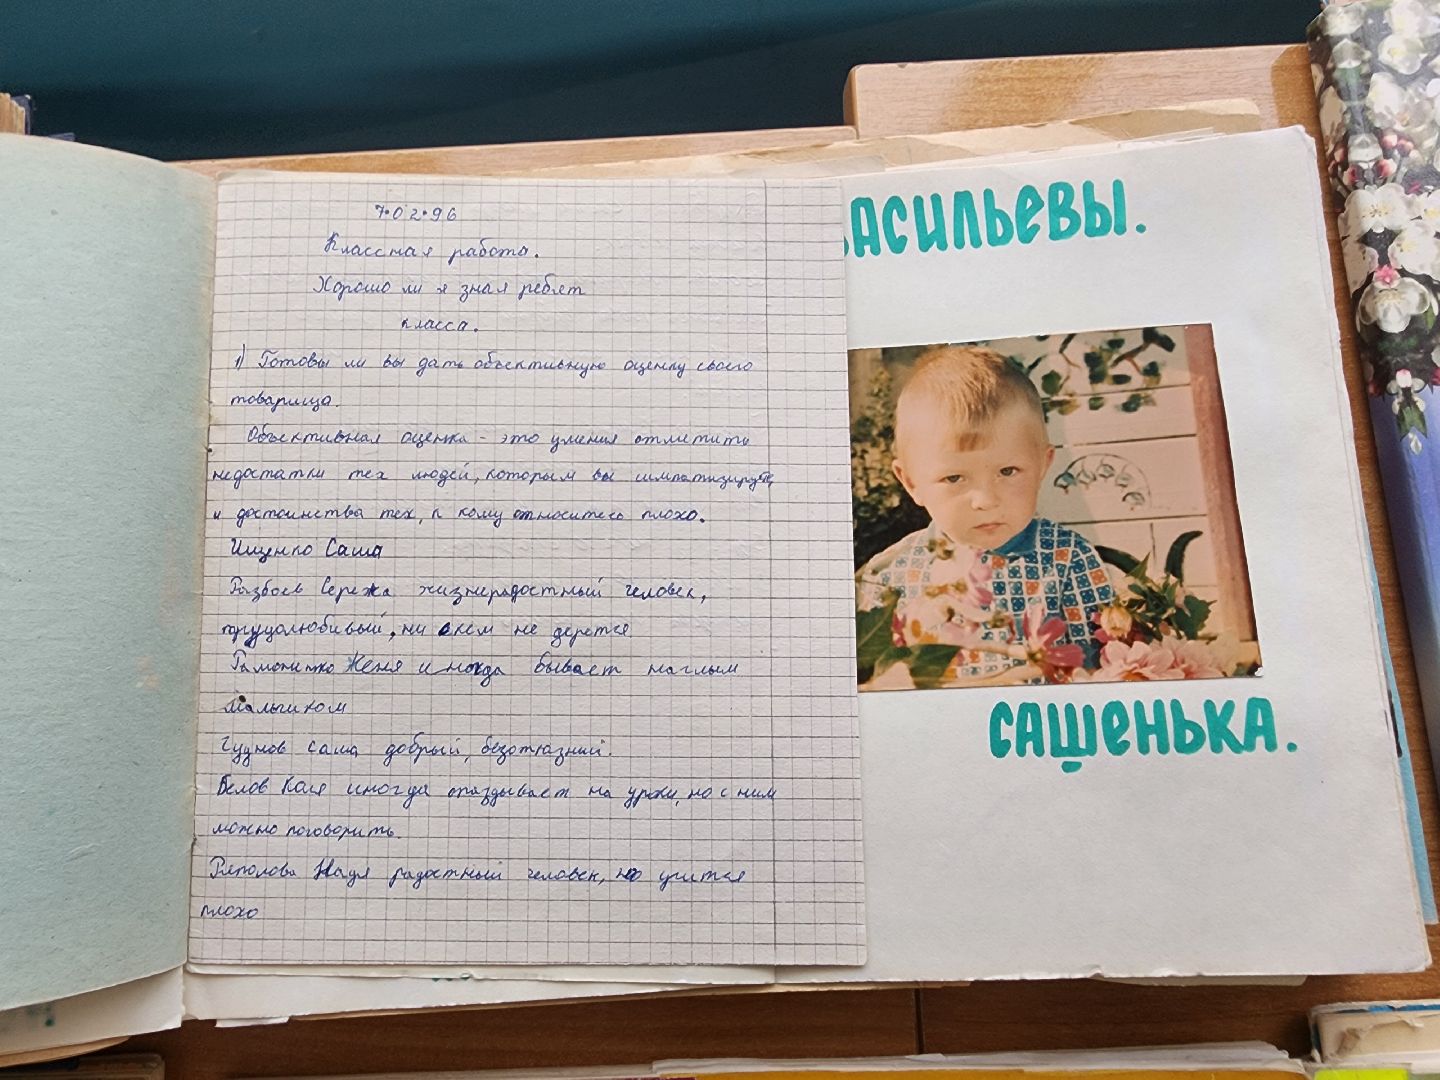 7.02.96
Классная работа.
Хорошо ли я зная ребят
класса.
1) Готовы ли вы дать объективную оценку своего
товарища.
Объективная оценка - это умения отметить
недостатки тех людей, которым вы симпатизируете,
и достоинства тех, к кому относитесь плохо.
Ищенко Саша
Разбоев Сережа жизнерадостный человек,
трудолюбивый, ни скем не дерется
Рамоненко Женя иногда бывает наглым
мальчиком
Чуднов Саша добрый, безотказный.
Белов Коля иногда опаздывает на уроки, но с ним
можно поговорить.
Надя радостный человек, но учится
плохо
ВАСИЛЬЕВЫ.
САШЕНЬКА.